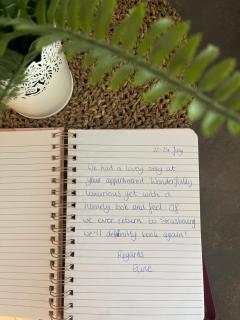 We had a lovely stay at
your appartment. Wonderfully
luxurious yet with a
homely look and feel. If
we ever return to Strasbourg
we'll definitly book again!
Regards